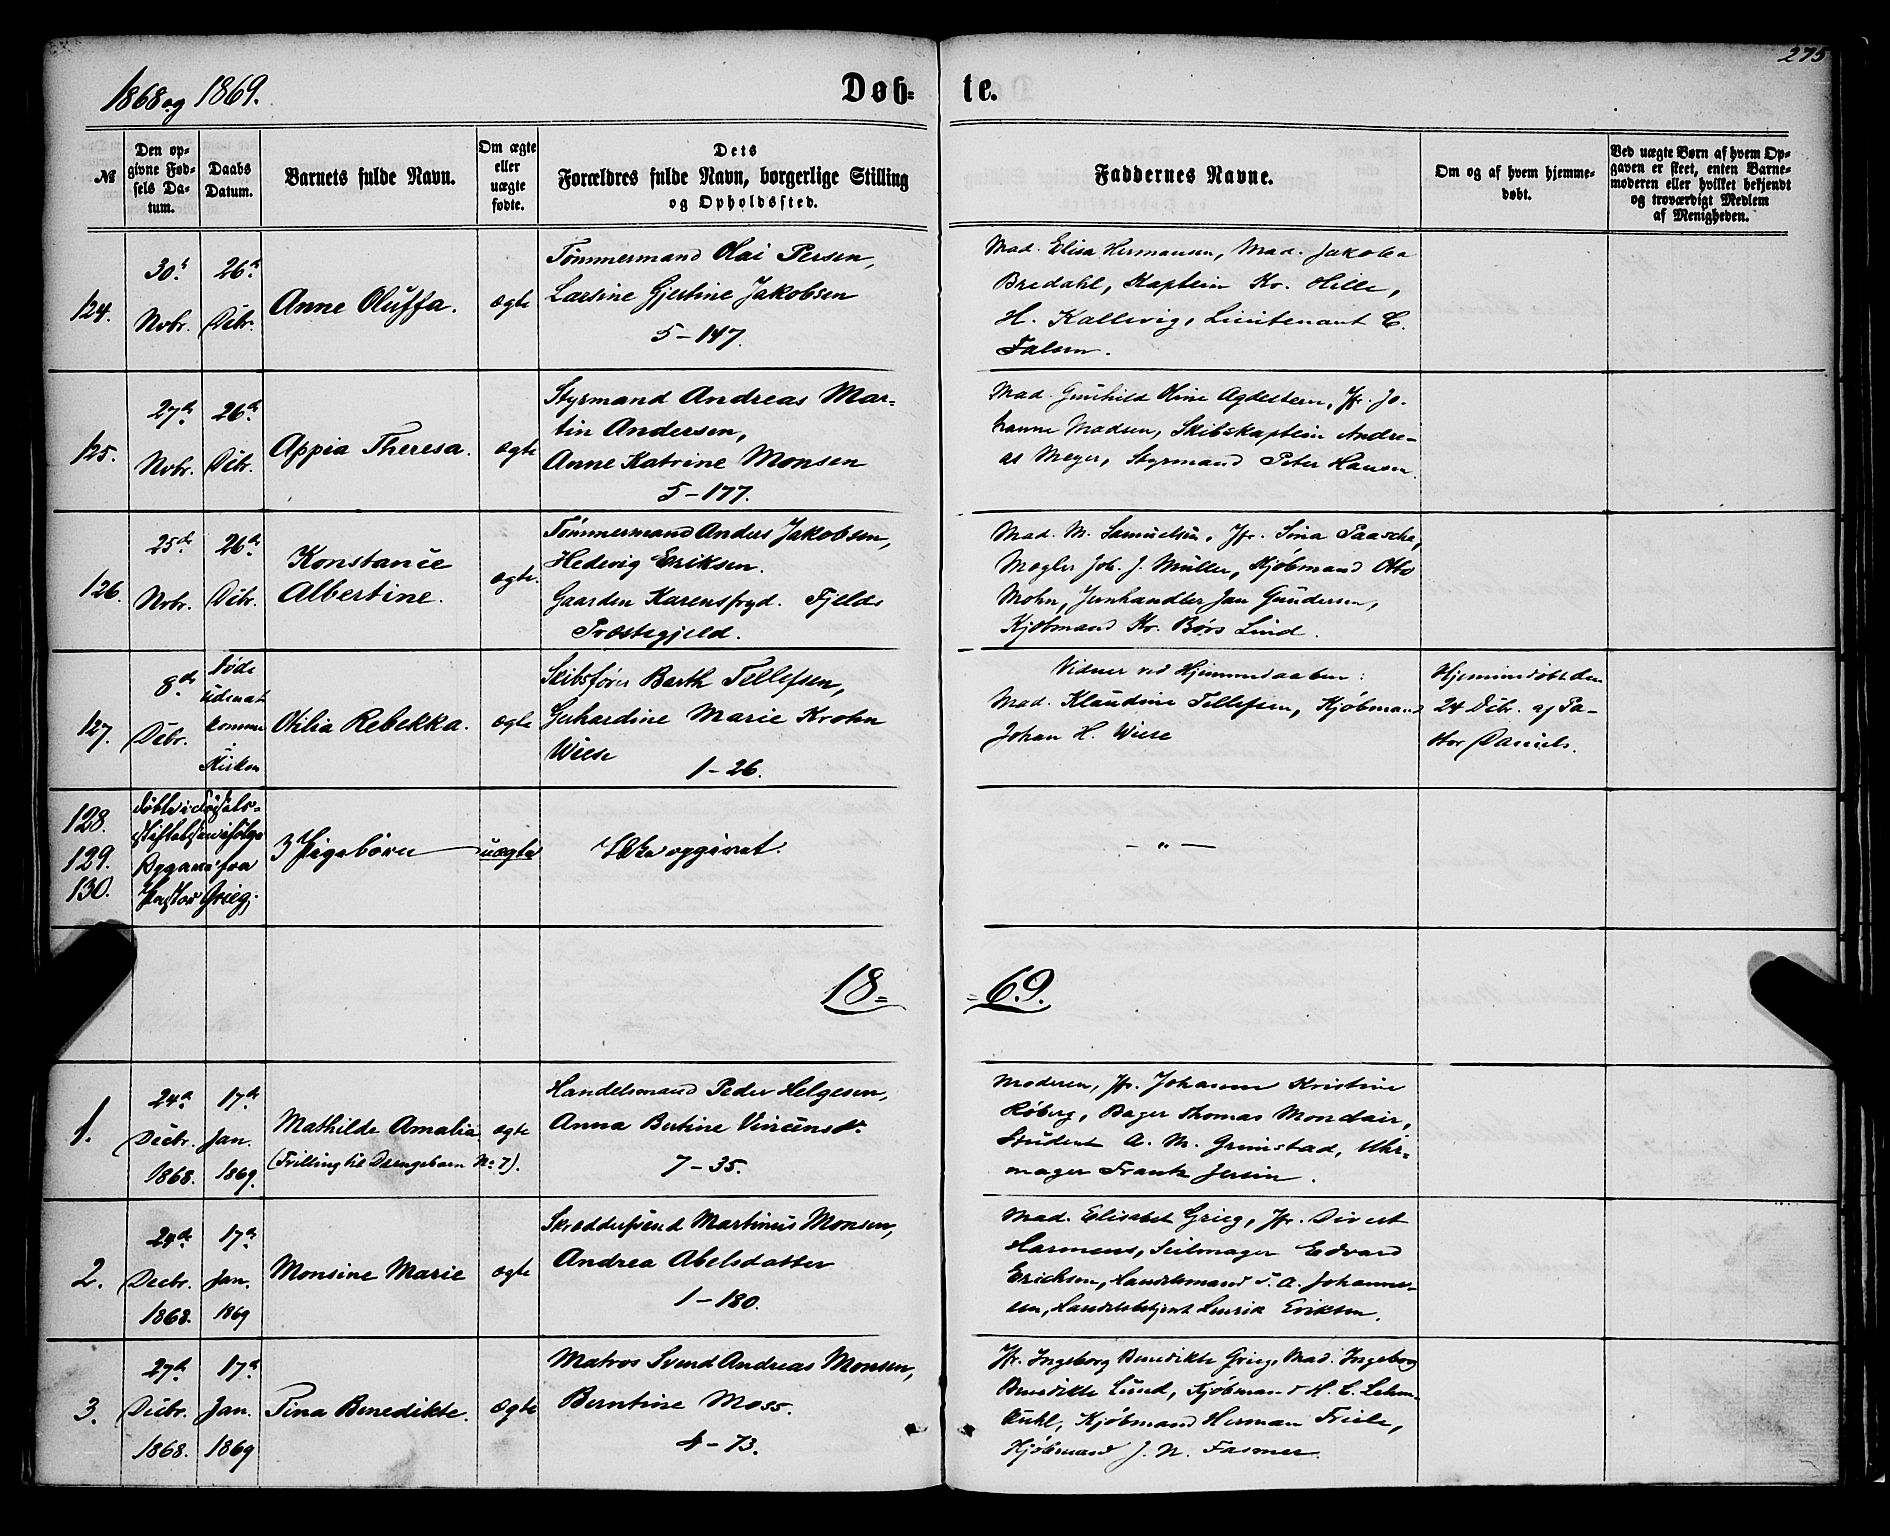 275
1868 og 1869.
Døb- te.
№
Den op-
givne Fød-
sels Da-
tum.
Daabs
Datum.
Barnets fulde Navn.
Om ægte
eller
uægte
fødte.
Dets
Forældres fulde Navn, borgerlige Stilling
og Opholdssted.
Faddernes Navne.
Om og af hvem hjemme-
døbt.
Ved uægte Børn af hvem Op-
gaven er skeet, enten Barne-
moderen eller hvilket bekjendt
og troværdigt Medlem
af Menigheden.
124.
30.
Nvbr.
26de
Dcbr.
Anne Oluffa.
ægte
Tømmermand Olai Persen,
Larsine Gjertine Jakobsen
5-147.
Mad. Elisa Hermansen, Mad. Jakoba
Bredahl, Kaptein Kr. Hille,
H. Kallevig, Lieutenant C.
Falsen.
125.
27de
Nvbr.
26de
Dcbr.
Appia Theresa.
ægte
Styrmand Andreas Mar-
tin Andersen,
Anne Katrine Monsen
5-177.
Mad. Gunhild Oline Agdestein, Jfr. Jo-
hanne Madsen, Skibskaptein Andre-
as Meyer, Styrmand Peter Hansen
126.
25de
Nvbr.
26de
Dcbr.
Konstance
Albertine.
ægte.
Tømmermand Anders Jakobsen,
Hedevig Eriksen.
Gaarden Karensfryd. Fjelds
Præstegjeld.
Mad. M. Samuelsen, Jfr. Sina Paasche,
Mægler Joh. J. Müller, Kjøbmand Otto
Mohn, Jernhandler Jan Gundersen,
Kjøbmand Kr. Børs Lind.
127.
8de
Dcbr.
Døde
uden at
komme i
Kirken
Otilia Rebekka.
ægte
Skibsfører Barth Tellefsen,
Gerhardine Marie Krohn
Wiese
1-26.
Vidner ved Hjemmedaaben:
Mad. Klaudine Tellefsen, Kjøbmand
Johan H. Wiese
Hjemmedøbt den
24 Dcbr. af Pa-
stor Daniels.
128.
129.
130.
Døbte i Fødsels-
stiftelsen ifølge
Opgave fra
Pastor Grieg.
3 Pigebørn
uægte
Ikke opgivet.
- " -
18= =69.
1.
24de
Decbr.
1868.
17de
Jan.
1869.
Mathilde Amalia
(Tvilling til Drengebarn No 7).
ægte
Handelsmand Peder Helgesen,
Anna Bertine Vincensdr.
7-35.
Moderen, Jfr. Johanne Kristine
Røberg, Bager Thomas Mondair,
Student A. M. Grimstad, Uhr-
mager Frantz Jersin.
2.
24de
Decbr.
1868.
17de
Jan.
1869
Monsine Marie
ægte
Skræddersvend Martinus Monsen,
Andrea Abelsdatter
1-180.
Mad. Elisabet Grieg, Jfr. Divert
Harmens, Seilmager Edvard
Erichsen, Handelsmand S. A. Johannes-
sen, Handelsbetjent Henrik Eriksen.
3.
27de
Decbr.
1868.
17de
Jan.
1869
Tina Benedikte.
ægte
Matros Svend Andreas Monsen,
Berntine Moss.
4-73.
Jfr. Ingeborg Benedikte Grieg, Mad. Ingeborg
Benedikte Lund, Kjøbmand H. C. Lehm-
kuhl, Kjøbmand Herman Friele,
Kjøbmand J. N. Fasmer.